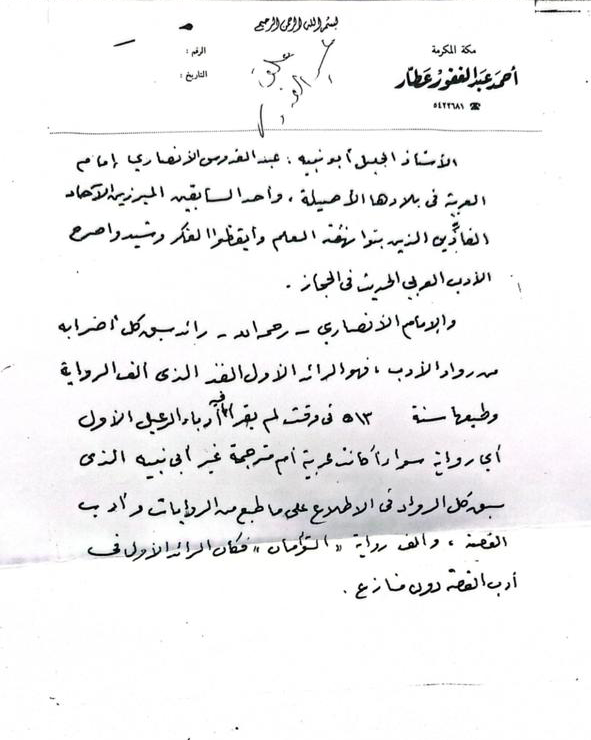 بسم الله الرحمن الرحيم
مكة المكرمة
أحمد عبد الغفور عطار
☎ ٥٤٢٢٦٨١
الرقم :
التاريخ :
الأستاذ الجليل أبو نبيه : عبد القدوس الأنصاري إمام
العربية في بلادها الأصيلة ، وأحد السابقين المبرزين الآحاد
الذين بنوا نهضة العلم وأيقظوا الفكر وشيدوا صرح
الأدب العربي الحديث في الحجاز .
والإمام الأنصاري – رحمه الله – رائد سبق كل أضرابه
من رواد الأدب ، فهو الرائد الأول الفذ الذى ألف الرواية
وطبعها سنة ١٣ هـ في وقت لم يقرأ فيه أدباء الرعيل الأول
أي رواية سواء أكانت عربية أم مترجمة غير أبى نبيه الذى
سبق كل الرواد في الاطلاع على ما طبع من الروايات وأدب
القصة ، وألف رواية « التوأمان » فكان الرائد الأول في
أدب القصة دون منازع .